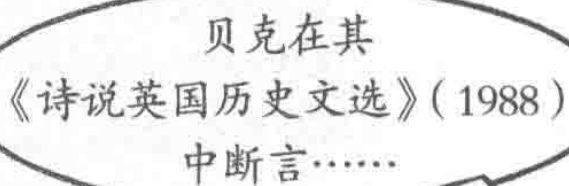 贝克在其
《诗说英国历史文选》(1988)
中断言……